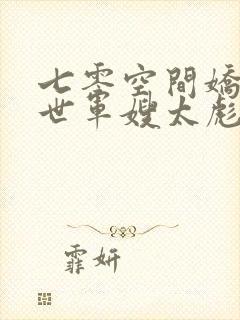 七零空間嬌
世軍嫂太彪
霏妍